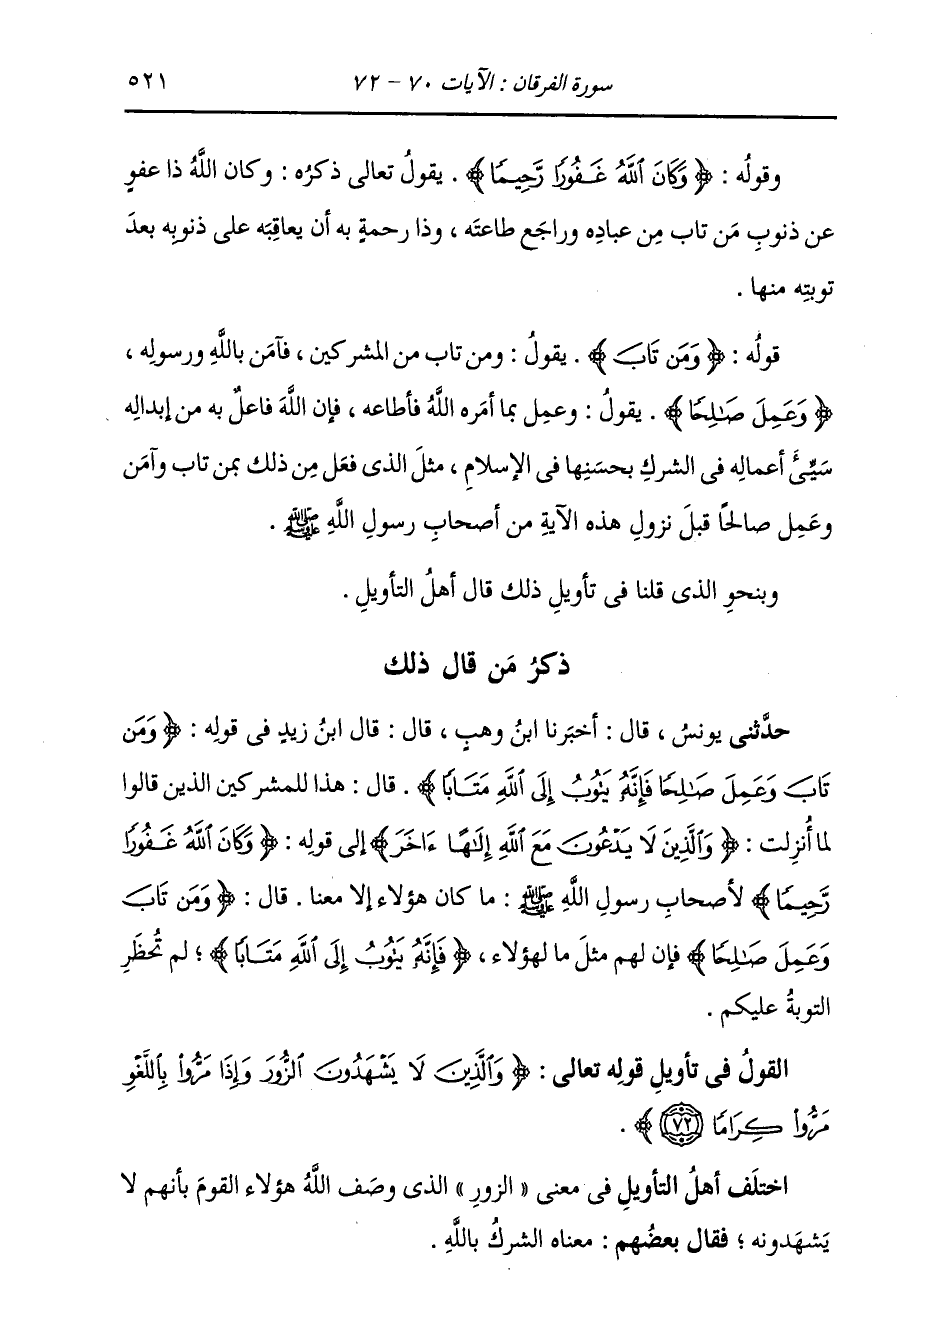 سورة الفرقان : الآيات ٧٠ - ٧٢ ٥٢١
وقولُه : ﴿ وَكَانَ ٱللَّهُ غَفُورًا رَّحِيمًا ﴾ . يقولُ تعالى ذكرُه : وكان اللَّهُ ذا عفوٍ
عن ذنوبِ مَن تاب مِن عبادِه وراجَع طاعتَه ، وذا رحمةٍ به أن يعاقِبَه على ذنوبِه بعدَ
توبتِه منها .
قولُه : ﴿ وَمَن تَابَ ﴾ . يقولُ : ومن تاب من المشركين ، فآمَن باللَّهِ ورسولِه ،
﴿ وَعَمِلَ صَٰلِحًا ﴾ . يقولُ : وعمِل بما أمَره اللَّهُ فأطاعه ، فإن اللَّهَ فاعلٌ به من إبدالِه
سَيِّئَ أعمالِه فى الشركِ بحسَنِها فى الإسلامِ ، مثلَ الذى فعَل مِن ذلك بمن تاب وآمَن
وعَمِل صالحًا قبلَ نزولِ هذه الآيةِ من أصحابِ رسولِ اللَّهِ ﷺ .
وبنحوِ الذى قلنا فى تأويلِ ذلك قال أهلُ التأويلِ .
ذكرُ مَن قال ذلك
حدَّثنى يونسُ ، قال : أخبَرنا ابنُ وهبٍ ، قال : قال ابنُ زيدٍ فى قولِه : ﴿ وَمَن
تَابَ وَعَمِلَ صَٰلِحًا فَإِنَّهُۥ يَتُوبُ إِلَى ٱللَّهِ مَتَابًا ﴾ . قال : هذا للمشركين الذين قالوا
لما أُنزِلت : ﴿ وَٱلَّذِينَ لَا يَدْعُونَ مَعَ ٱللَّهِ إِلَٰهًا ءَاخَرَ ﴾ إلى قولِه : ﴿ وَكَانَ ٱللَّهُ غَفُورًا
رَّحِيمًا ﴾ لأصحابِ رسولِ اللَّهِ ﷺ : ما كان هؤلاء إلا معنا . قال : ﴿ وَمَن تَابَ
وَعَمِلَ صَٰلِحًا ﴾ فإن لهم مثلَ ما لهؤلاء ، ﴿ فَإِنَّهُۥ يَتُوبُ إِلَى ٱللَّهِ مَتَابًا ﴾ ؛ لم تُحظَرِ
التوبةُ عليكم .
القولُ فى تأويلِ قولِه تعالى : ﴿ وَٱلَّذِينَ لَا يَشْهَدُونَ ٱلزُّورَ وَإِذَا مَرُّوا۟ بِٱللَّغْوِ
مَرُّوا۟ كِرَامًا ٧٢ ﴾ .
اختلَف أهلُ التأويلِ فى معنى « الزورِ » الذى وصَف اللَّهُ هؤلاء القومَ بأنهم لا
يَشهَدونه ؛ فقال بعضُهم : معناه الشركُ باللَّهِ .